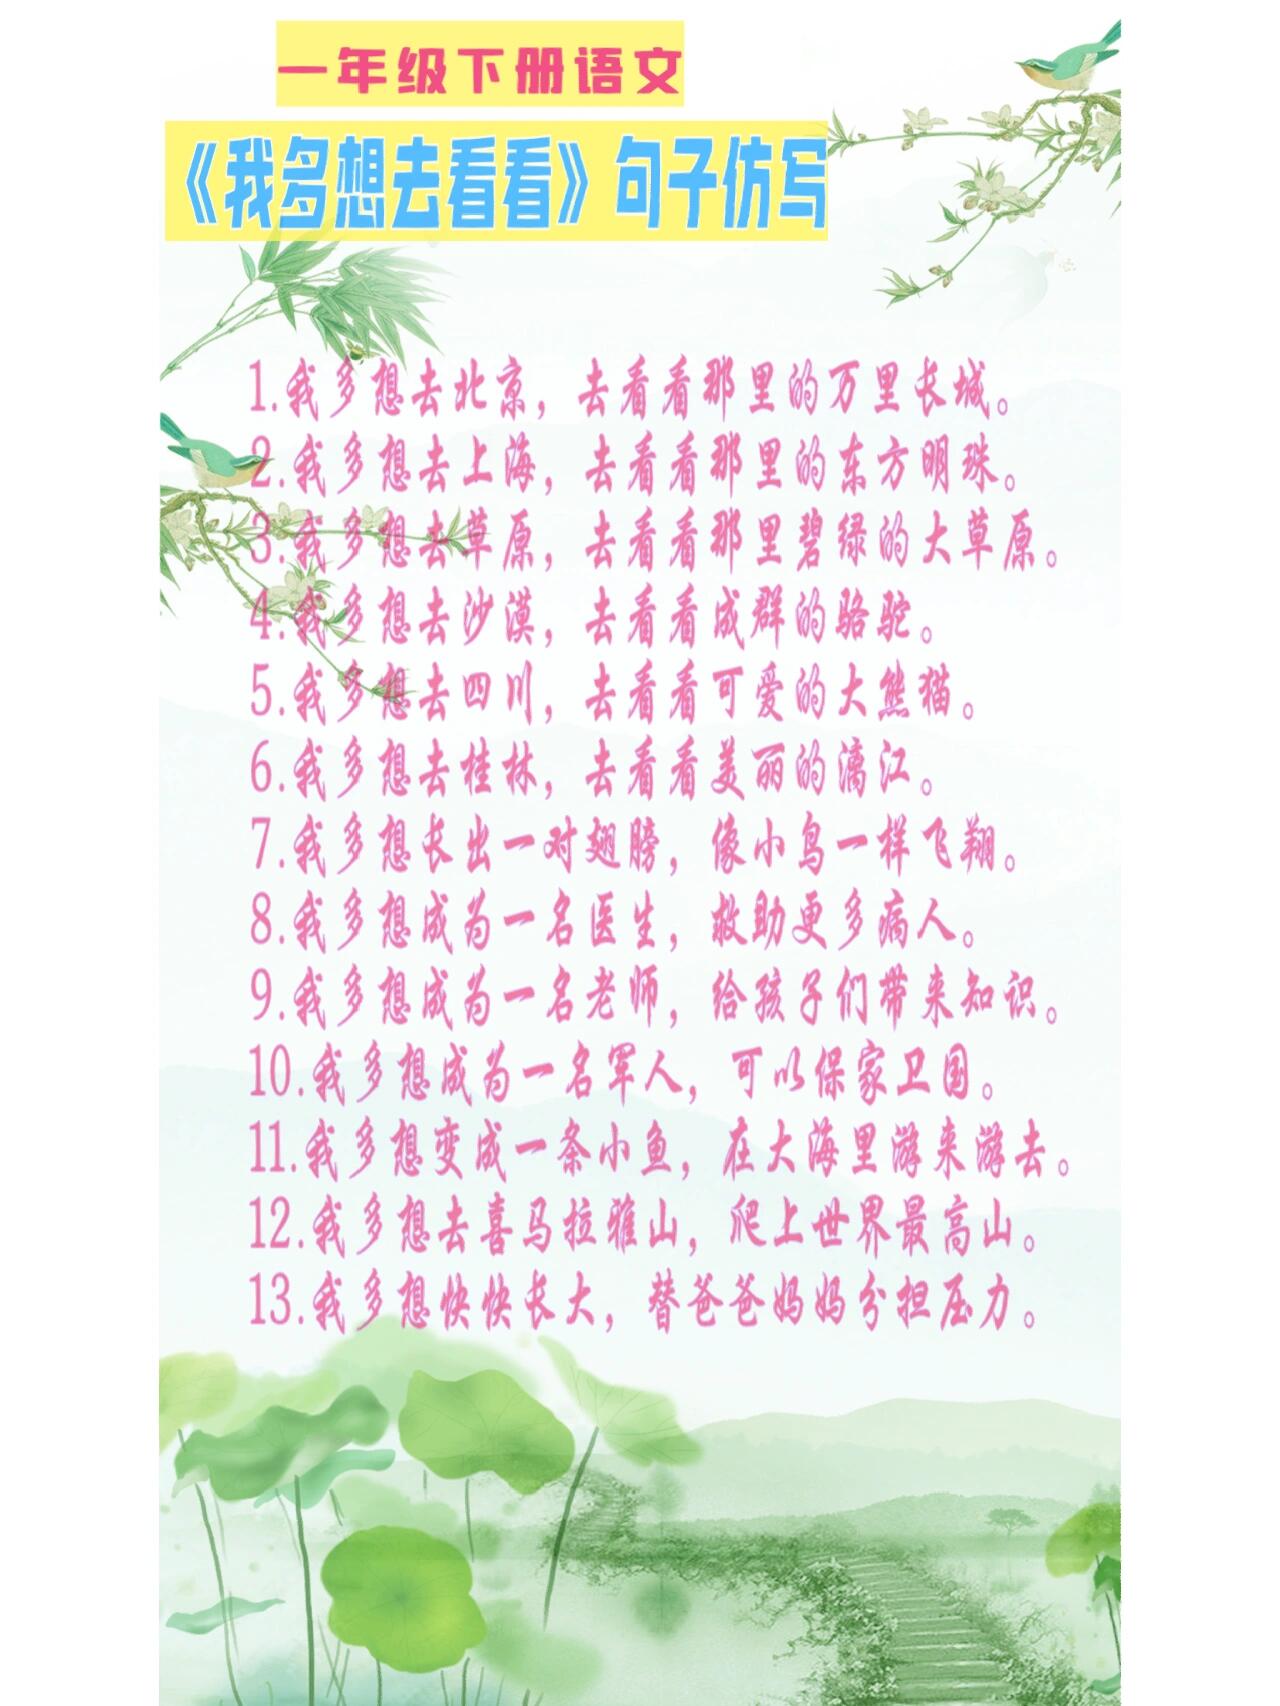 一年级下册语文
《我多想去看看》句子仿写
1.我多想去北京，去看看那里的万里长城。
2.我多想去上海，去看看那里的东方明珠。
3.我多想去草原，去看看那里碧绿的大草原。
4.我多想去沙漠，去看看成群的骆驼。
5.我多想去四川，去看看可爱的大熊猫。
6.我多想去桂林，去看看美丽的漓江。
7.我多想长出一对翅膀，像小鸟一样飞翔。
8.我多想成为一名医生，救助更多病人。
9.我多想成为一名老师，给孩子们带来知识。
10.我多想成为一名军人，可以保家卫国。
11.我多想变成一条小鱼，在大海里游来游去。
12.我多想去喜马拉雅山，爬上世界最高山。
13.我多想快快长大，替爸爸妈妈分担压力。